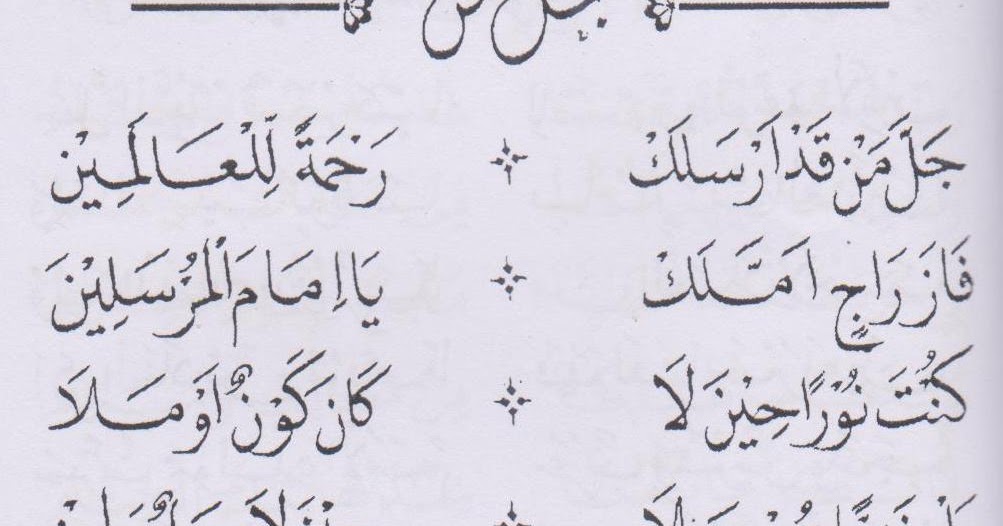 جَلَّ مَنْ قَدْ اَرْسَلَكْ ✣ رَحْمَةً لِلْعَالَمِيْن
فَازَ رَاجٍ اَمَّلَكْ ✣ يَا اِمَامَ الْمُرْسَلِيْنَ
كُنْتَ نُوْرًا حِيْنَ لَا ✣ كَانَ كَوْنٌ اَوْ مَلَا